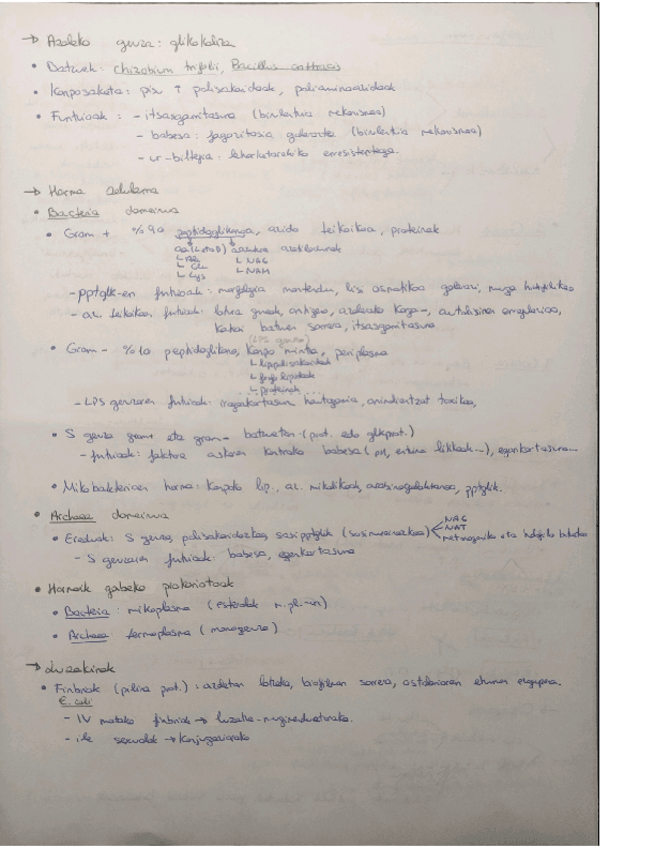 → Azaleko geruza: glikokalixa
• Batzuek: Rhizobium trifolii, Bacillus anthracis
• Konposaketa: pisu ↑ polisakaridoak, poliaminoazidoak
• Funtzioak: - itsasgarritasuna (birulentzia mekanismoa)
- babesa: fagozitosia galarazta (birulentzia mekanismoa)
- ur-biltegia: lehorketarekiko erresistentzia.
→ Horma zelularra
• Bacteria domeinua
• Gram + %90 peptidoglikanoa, azido teikoikoa, proteinak
aa (L eta D) azukre
↳ Ala ↳ NAG
↳ Glu ↳ NAM
↳ Lys
- pptglk-en funtzioak: morfologia mantendu, lisi osmotikoa galarazi, muga
- az. teikoikoen funtzioak: lotura guneak, antigeno, azaleko karga -, autolisinen erregulazioa,
kateai batzuen sorrera, itsasgarritasuna
• Gram - %10 peptidoglikano, kanpo mintza, periplasma
(LPS geruza)
↳ lipopolisakaridoak
↳ fosfolipidoak
↳ proteinak ...
- LPS geruzaren funtzioak: iragazkortasun hautakorra, animalientzat toxikoa,
• S geruza gram+ eta gram- batzuetan (prot. edo glikoprot.)
- funtzioak: faktore askoren kontrako babesa (pH, entzima litikoak...), egonkortasuna...
• Mikobakterioen horma: konposatu lip., az. mikolikoak, arabinogalaktanoa, pptglk.
• Archaea domeinua
• Ereduak: S geruza, polisakaridozkoa, sasipptglk (sasimureinazkoa) < NAG
NAT
metanogeniko eta halofilo batzuetan
- S geruzaren funtzioak: babesa, egonkortasuna
• Hormarik gabeko prokariotoak
• Bacteria: mikoplasma (esterolak m.pl.-an)
• Archaea: termoplasma (monogeruza)
→ Luzakinak
• Finbriak (pilina prot.): azaletan lotzeko, biofilmen sorrera, ostalariaren ehunean
E. coli
- IV motako finbriak → luzatze-mugimenduetarako.
- ile sexualak → Konjugaziorako